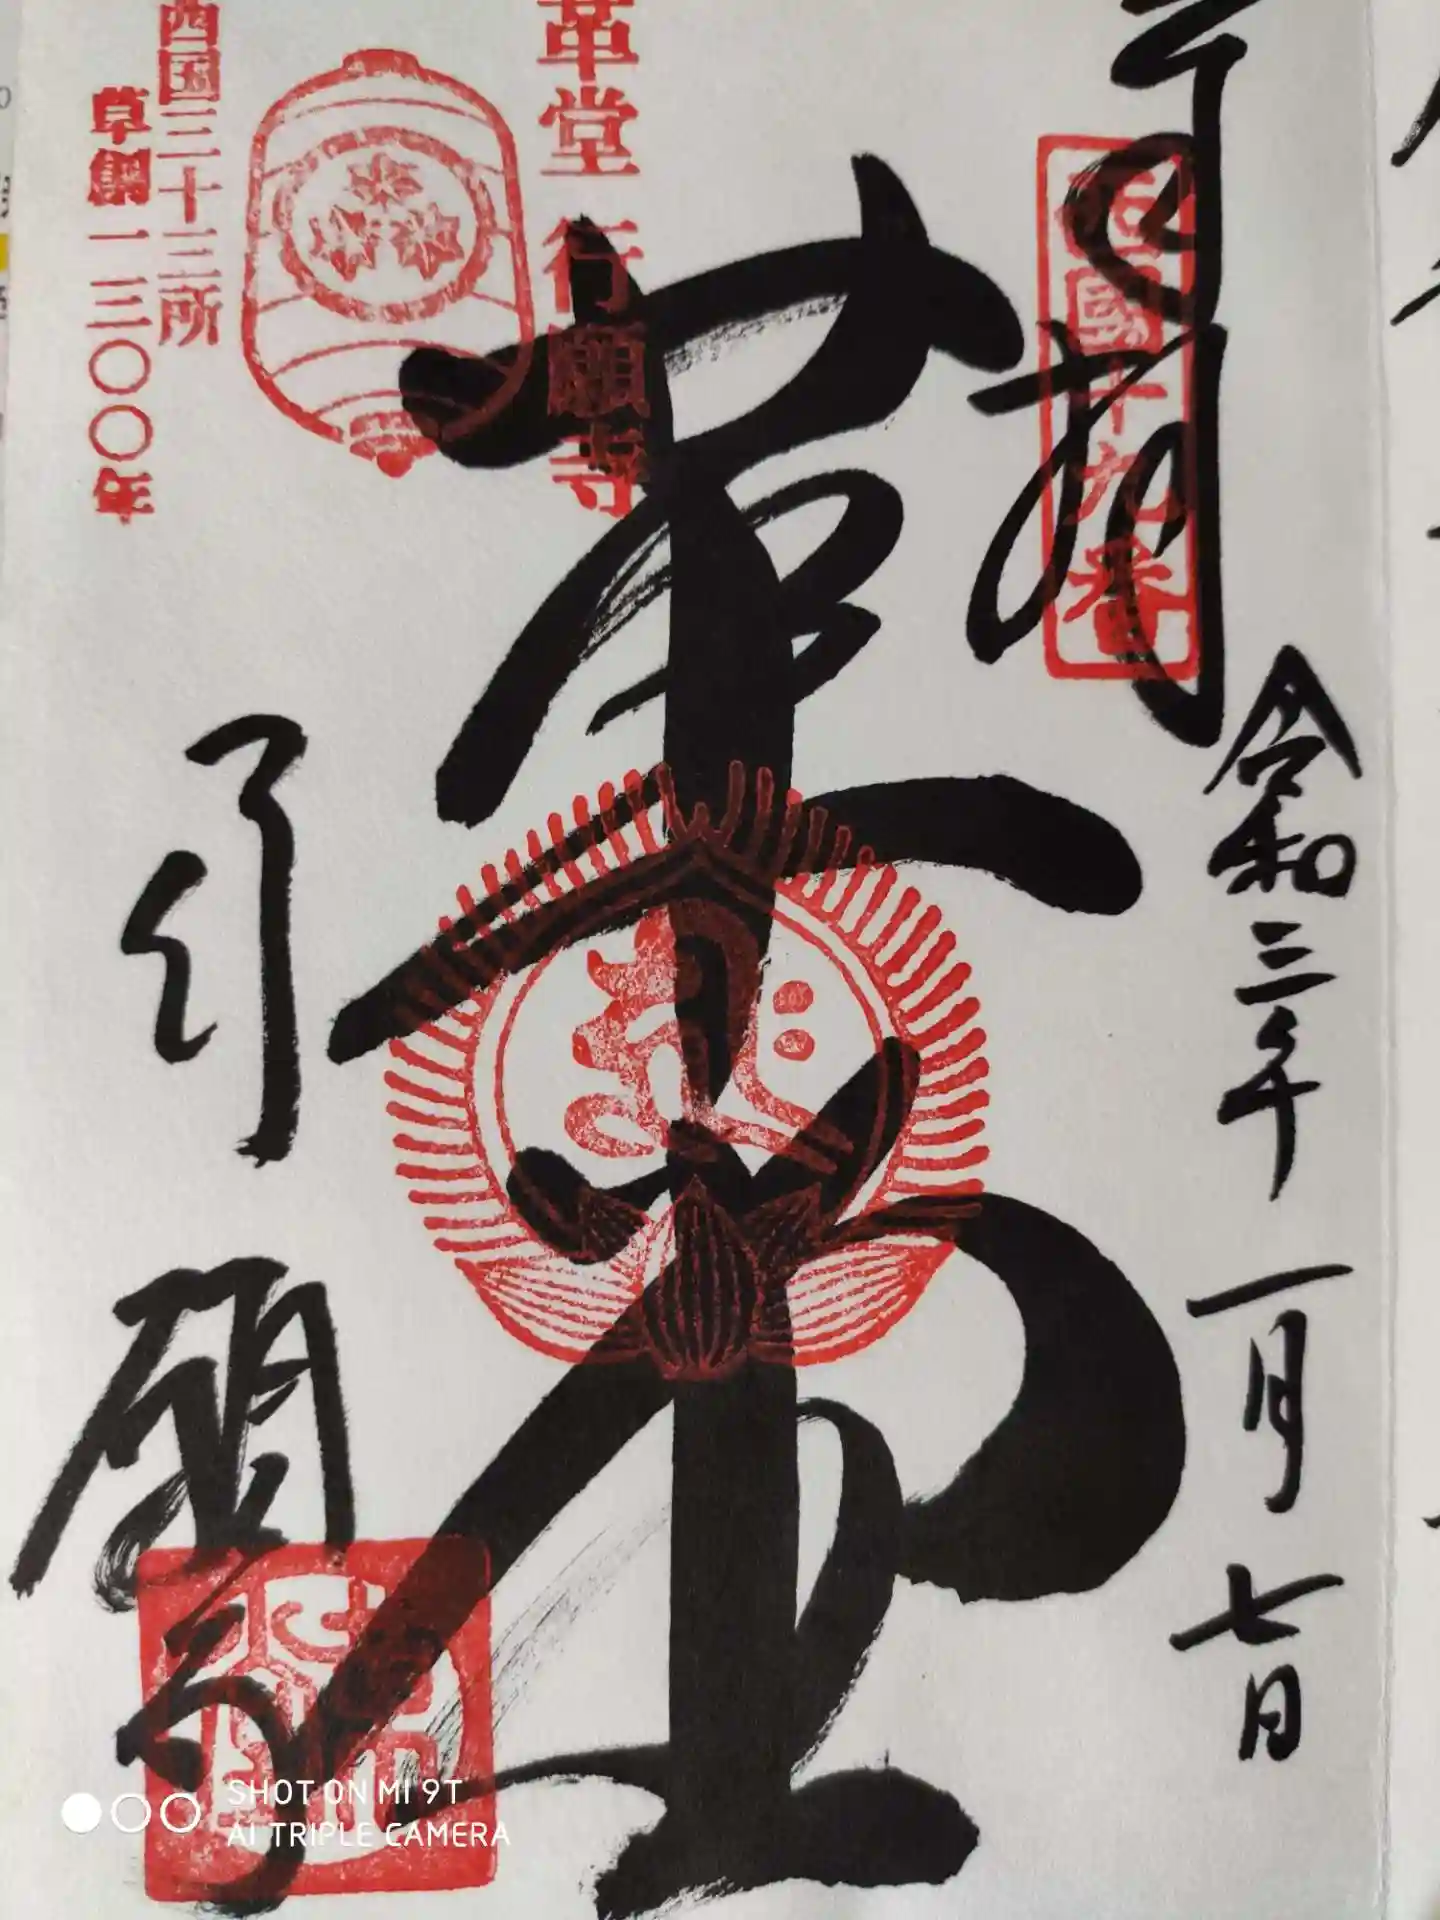 奉拝
西國十九番
令和三年
一月七日
革堂
革堂 行願寺
西国三十三所
草創一三〇〇年
行願寺
SHOT ON MI 9T
AI TRIPLE CAMERA